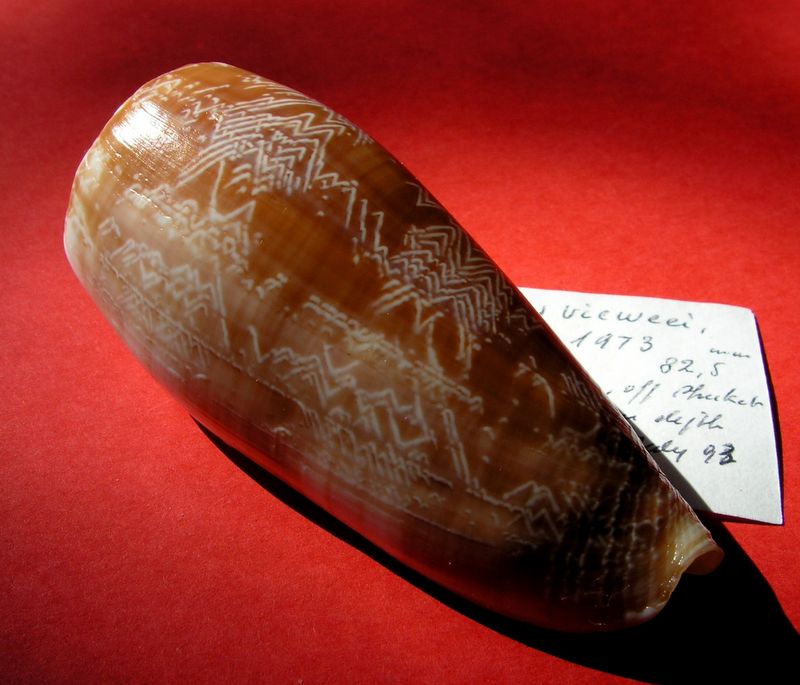 vicweei,
1973 mm
82,5
, off Phuket
depth
93